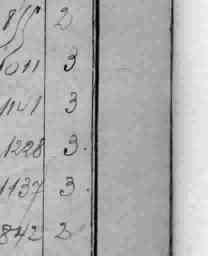 2
1011 3
1141 3
1228 3.
1137 3.
842 2